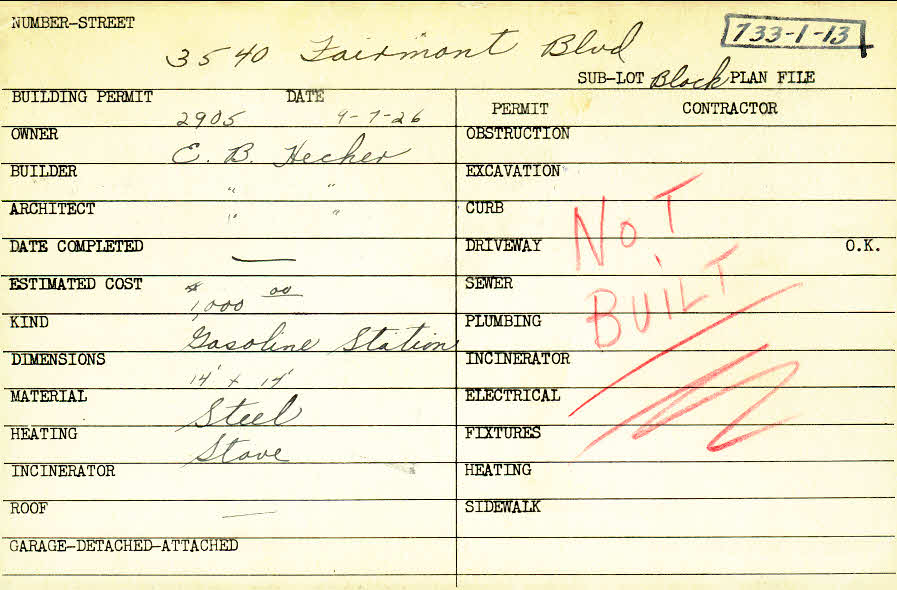 NUMBER-STREET
733-1-13
3540 Fairmont Blvd
SUB-LOT Block PLAN FILE
BUILDING PERMIT DATE
2905 9-7-26
PERMIT CONTRACTOR
OWNER
E. B. Hecker
OBSTRUCTION
BUILDER
" "
EXCAVATION
ARCHITECT
" "
CURB
DATE COMPLETED
—
DRIVEWAY O.K.
NOT
BUILT
ESTIMATED COST
$1,000 00
SEWER
KIND
Gasoline Station
PLUMBING
DIMENSIONS
14' x 14'
INCINERATOR
MATERIAL
Steel
ELECTRICAL
HEATING
Stove
FIXTURES
INCINERATOR
HEATING
ROOF
—
SIDEWALK
GARAGE-DETACHED-ATTACHED